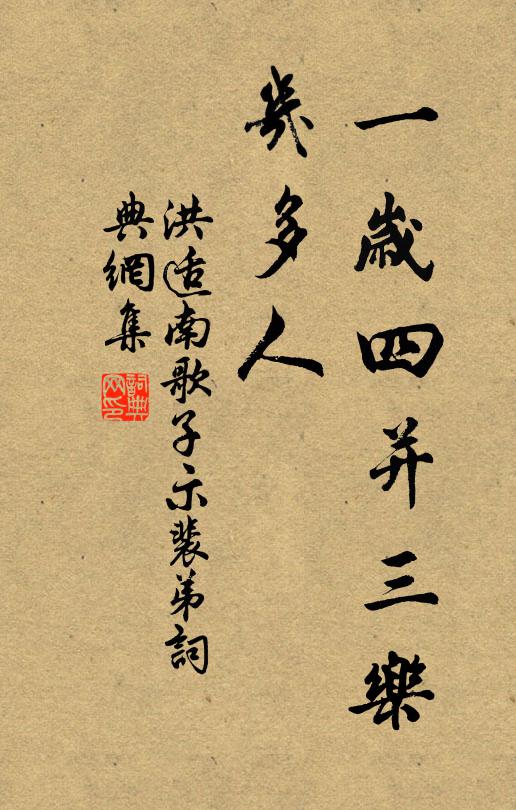 一歲四并三樂
幾多人
洪适南歌子示裴弟詞
典網集
詞典
网印